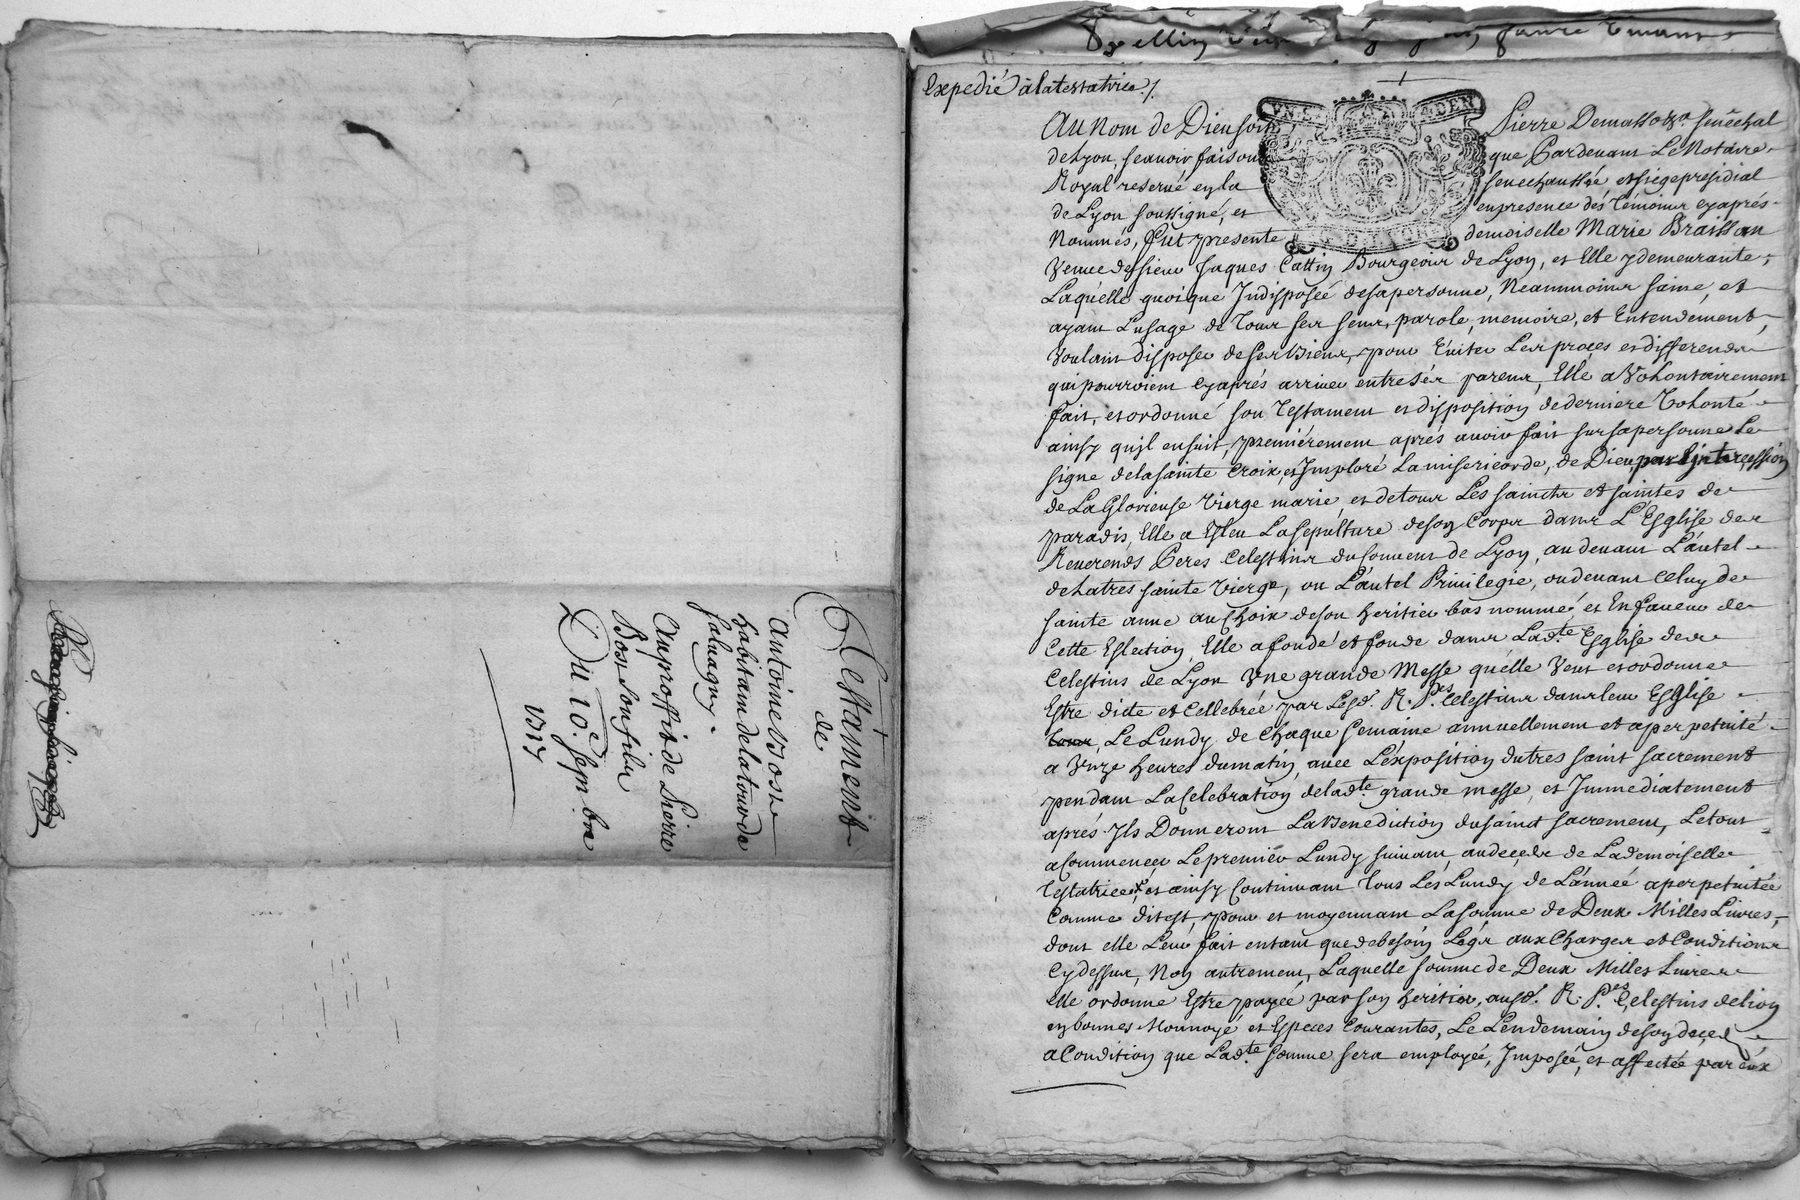 Testament
de
Antoine Bost
habitant de la tour de
salvagny.
Au proffit de Pierre
Bost son fils
Du 10e. sepm.bre
1717
Expedié à la testatrice /.
GEN
Au Nom de Dieu soit Pierre Demasso sgr. senêchal
de Lyon, scavoir faisons que Pardevant Le Notaire
Royal reservé en la senechaussée et siege presidial
de Lyon soussigné, et en presence des Témoins cyaprés
Nommés, fut presente demoiselle Marie Braissan
Veuve de sieur Jaques Cattin Bourgeois de Lyon, et Elle y demeurante,
Laquelle quoique Indisposée de sa personne, Neanmoins saine, et
ayant L'usage de Tous ses sens, parole, memoire, et Entendement,
Voulant disposer de ses biens, pour Eviter Les procés et differends
qui pourroient cyaprés arriver entre sés parens, Elle a Volontairement
fait, et ordonné son Testament et disposition de derniere Volonté
ainsy qu'il ensuit, premiérement aprés avoir fait sur sa personne Le
signe de la sainte Croix, et Imploré La misericorde, de Dieu, par L'intercession
de La Glorieuse Vierge marie, et de tous Les saincts et saintes de
paradis, Elle a Esleu La sepulture de son Corps dans L'Esglise des
Reverends Peres Celestins du Couvent de Lyon, au devant L'autel
de La tres sainte Vierge, ou L'autel Privilegié, ou devant celuy de
sainte anne au Choix de son heritier bas nommé et En faveur de
Cette Eslection, Elle a fondé et fonde dans Lad.te Esglise des
Celestins de Lyon Vne grande Messe qu'elle Veut et ordonne
Estre dicte et Cellebrée par Lesd. R. P.es Celestins dans leur Esglise
Le Lundy de Chaque semaine annuellement et a perpetuité
a Vnze heures du matin, avec L'exposition du tres saint sacrement
pendant La Celebration de lad.te grande messe, et Immediatement
aprés Ils Donneront La Benediction du sainct sacrement, Le tout
a Commencer Le premier Lundy suivant, au decés de La demoiselle
Testatrice, et ainsy Continuant Tous Lés Lundy de L'année a perpetuitée
Comme dit est, pour et moyennant La somme de Deux Milles Livres,
dont elle Leur fait entant que de besoin Legs aux Charges et Conditions
Cy dessus, Non autrement, Laquelle somme de Deux Milles Livres
elle ordonne Estre payée par son heritier, ausd. R. P.es Celestins de Lion
en bonnes Monnoyé et Especes Courantes, Le Lendemain de son deces
a Condition que Lad.te somme sera employée, Imposée, et affectée par eux